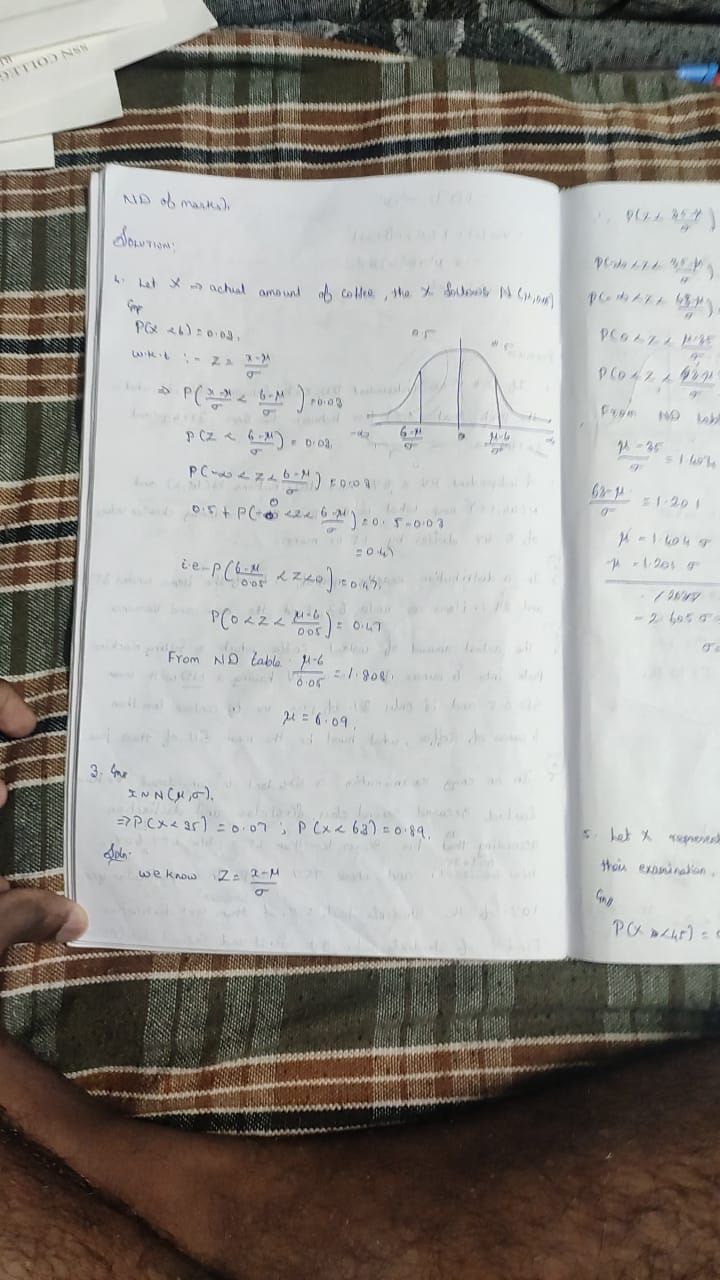 SSN COLLEG
ND of marks).
SOLUTION:
4. Let X → actual amount of coffee, the X follows N(μ, 0.05)
Gn
P(X < 6) = 0.03.
w.k.t :- Z = x-μ/σ
⇒ P(x-μ/σ < 6-μ/σ) = 0.03
P(Z < 6-μ/σ) = 0.03.
P(-∞ < Z < 6-μ/σ) = 0.03
0.5 + P(-0 < Z < 6-μ/σ) = 0.5-0.03
= 0.47
i.e - P(6-μ/0.05 < Z < 0) = 0.47.
P(0 < Z < μ-6/0.05) = 0.47
From ND table μ-6/0.05 = 1.808
μ = 6.09.
0.5
0.5
-∞
6-μ/σ
0
μ-6/σ
∞
3. Gn
X N N(μ,σ).
⇒ P(X < 35) = 0.07 ; P(X < 63) = 0.89.
Soln:
we know Z = x-μ/σ
∴ P(Z < 35-μ/σ)
P(-∞ < Z < 35-μ/σ)
P(-∞ < Z < 63-μ/σ)
P(0 < Z < μ-35
P(0 < Z <
From ND tabl
μ-35/σ = 1.4
63-μ/σ = 1.201
μ = 1.404 σ
μ = 1.201 σ
= 2.605 σ
σ=
5. Let X represent
their examination.
Gn
P(X < 45) =